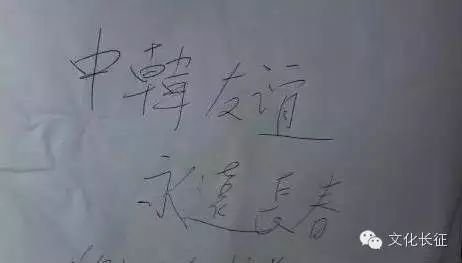 中韓友谊
永遠長春
文化长征